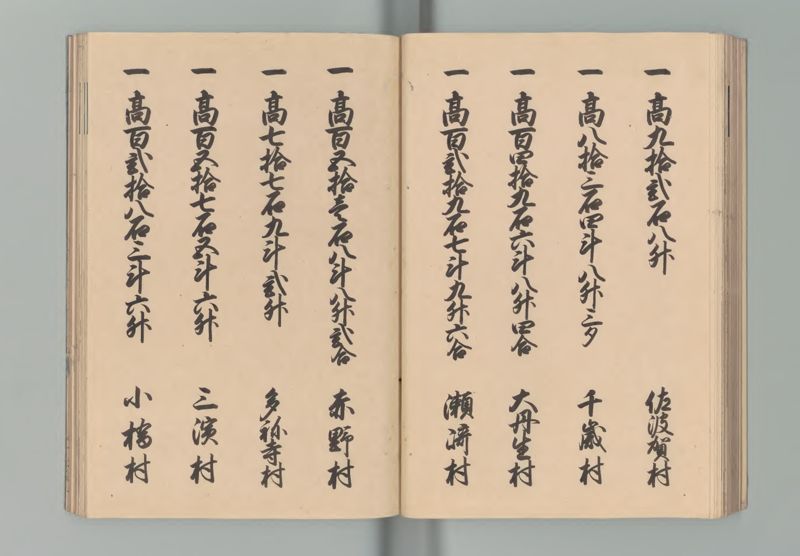 一高九拾弐石八升 佐波賀村
一高八拾三石四斗八升三夕 千歳村
一高百四拾九石六斗八升四合 大丹生村
一高百弐拾九石七斗九升六合 瀬崎村
一高百五拾壱石八斗八升弐合 赤野村
一高七拾七石九斗弐升 多祢寺村
一高百五拾七石五斗六升 三濱村
一高百弐拾八石三斗六升 小橋村